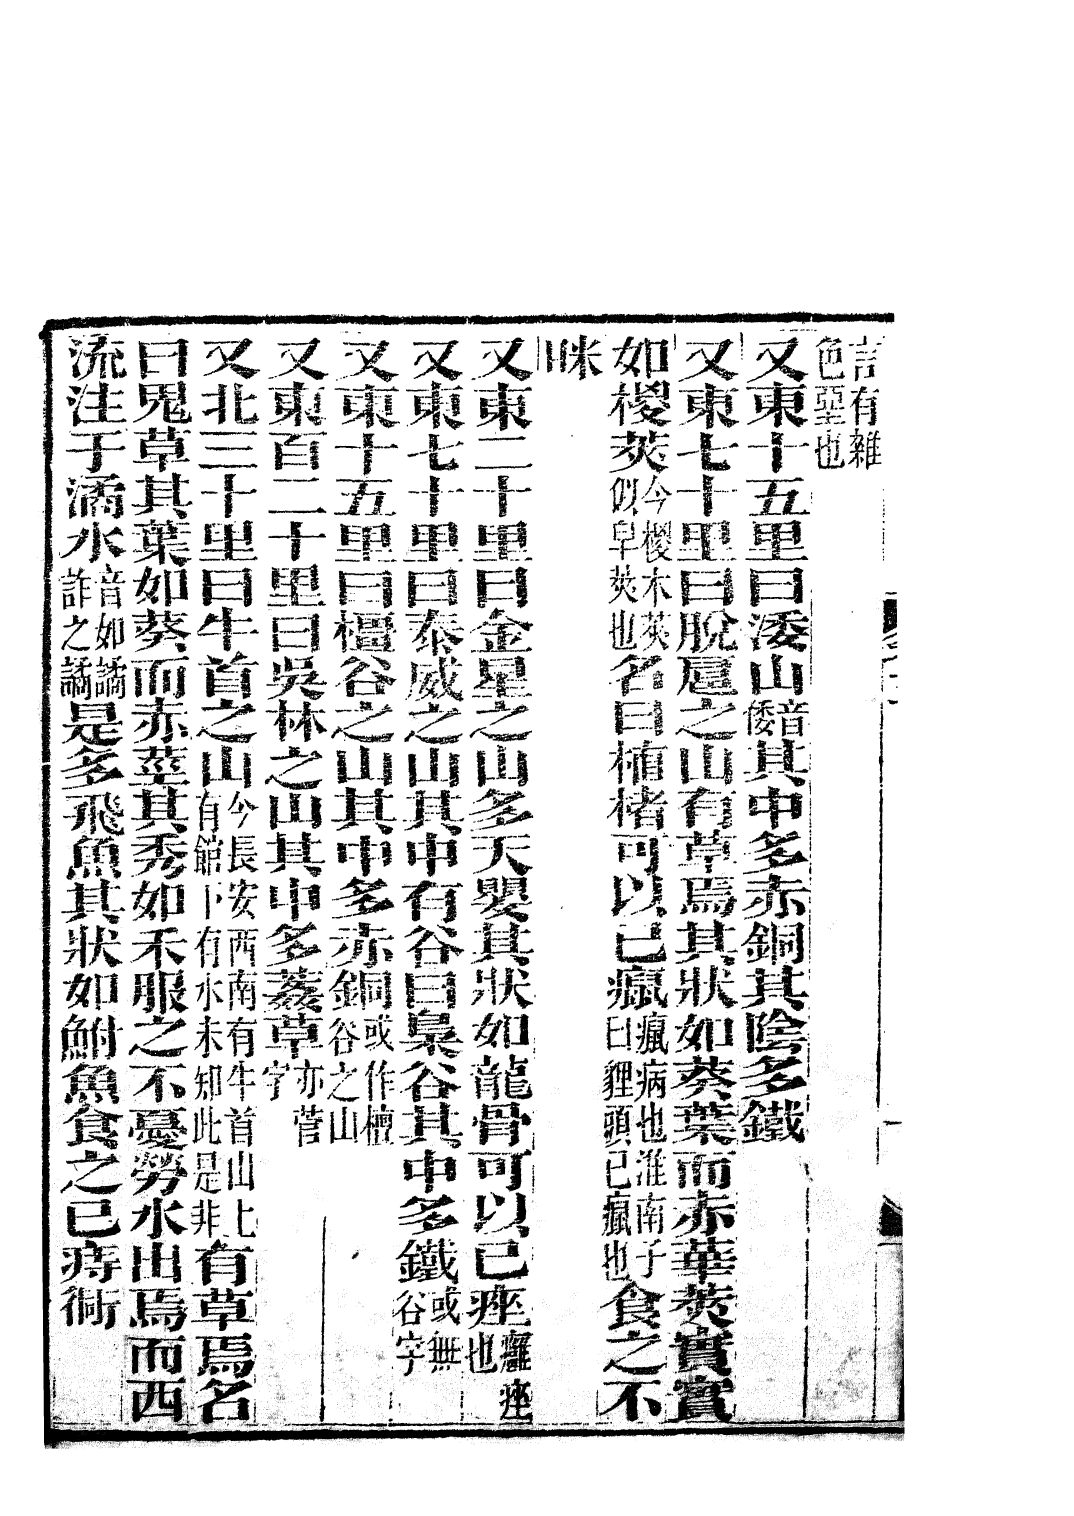 言有雜色堊也
又東十五里曰涹山音倭其中多赤銅其陰多鐵
又東七十里曰脫扈之山有草焉其狀如葵葉而赤華莢實實
如椶莢今椶木莢似皁莢也名曰植楮可以已癙癙病也淮南子曰貍頭已癙也食之不
眯
又東二十里曰金星之山多天嬰其狀如龍骨可以已痤癰痤也
又東七十里曰泰威之山其中有谷曰梟谷其中多鐵或無谷字
又東十五里曰橿谷之山其中多赤銅或作檀谷之山
又東百二十里曰吳林之山其中多葌草亦菅字
又北三十里曰牛首之山今長安西南有牛首山上有館下有水未知此是非有草焉名
曰鬼草其葉如葵而赤莖其秀如禾服之不憂勞水出焉而西
流注于潏水音如譎詐之譎是多飛魚其狀如鮒魚食之已痔衕